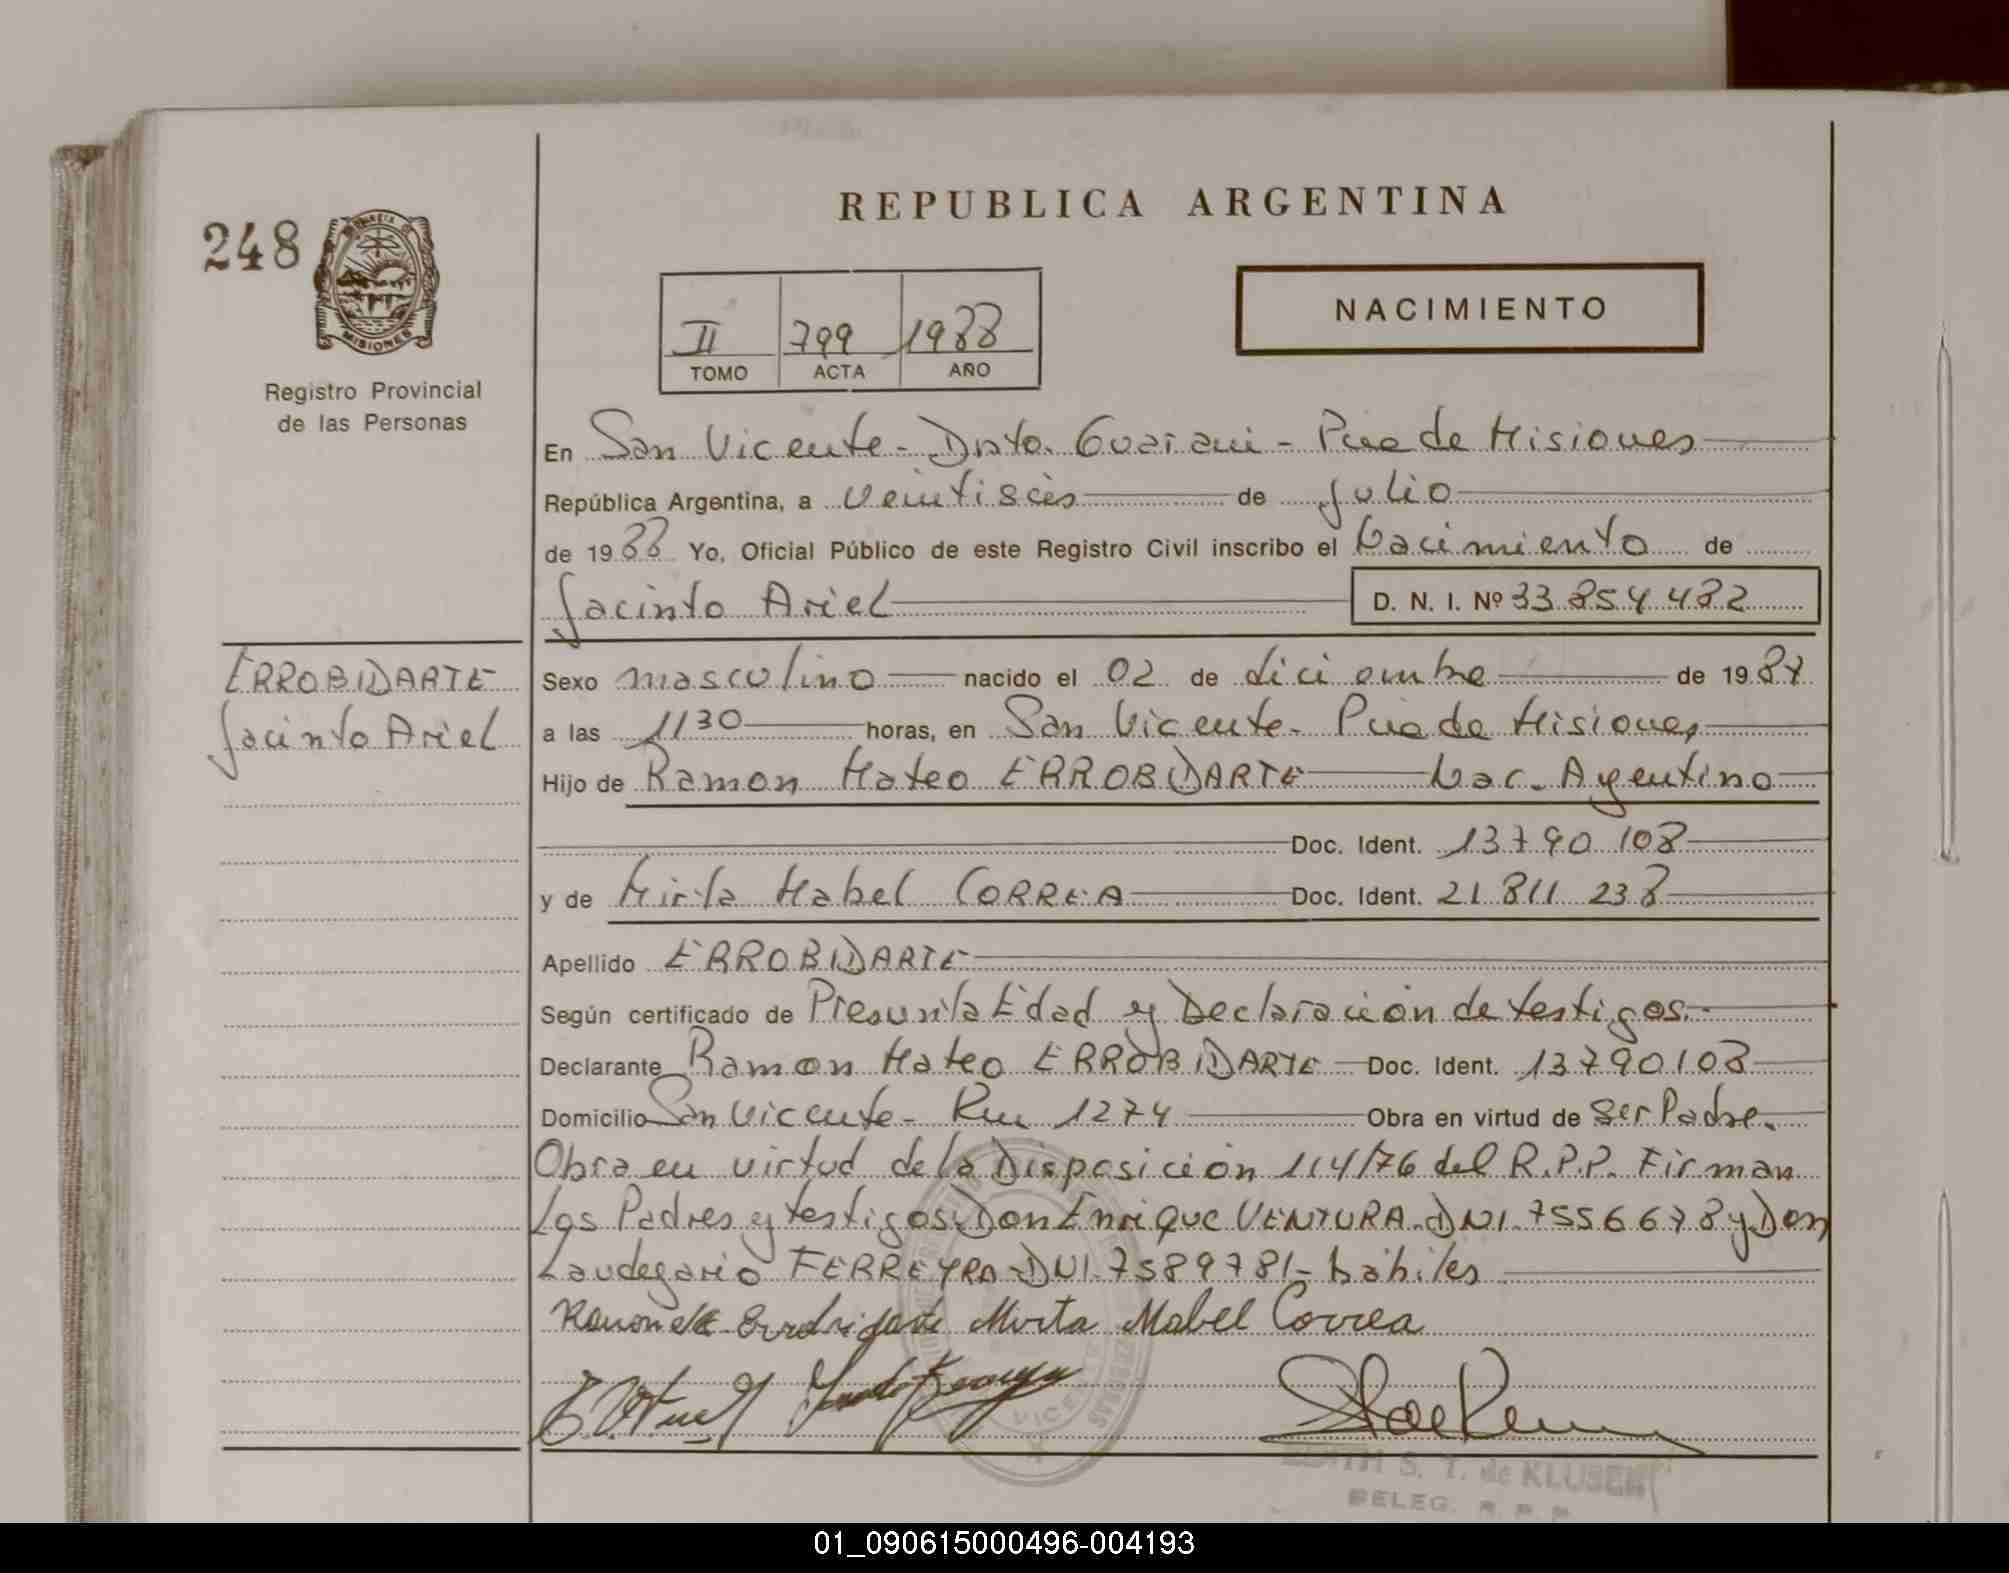 REPUBLICA ARGENTINA
248
MISIONES
Registro Provincial
de las Personas
II 799 1988
TOMO ACTA AÑO
NACIMIENTO
En San Vicente - Dpto. Guarani - Pcia de Misiones
República Argentina, a veintiseis de Julio
de 1988 Yo, Oficial Público de este Registro Civil inscribo el Nacimiento de
Jacinto Ariel D. N. I. Nº 33 854 482
ERROBIDARTE
Jacinto Ariel
Sexo masculino nacido el 02 de diciembre de 1987
a las 1130 horas, en San Vicente - Pcia de Misiones
Hijo de Ramon Mateo ERROBIDARTE Nac. Argentino
Doc. Ident. 13790 108
y de Mirta Mabel CORREA Doc. Ident. 21 811 238
Apellido ERROBIDARTE
Según certificado de Presunta Edad y Declaración de testigos.
Declarante Ramon Mateo ERROBIDARTE Doc. Ident. 13790108
Domicilio San Vicente - Km 1274 Obra en virtud de Ser Padre.
Obra en virtud de la Disposición 114/76 del R.P.P. Firman
Los Padres y testigos: Don Enrique VENTURA - DNI. 7556678 y Don
Laudegario FERREYRA - DNI. 7589781 - hábiles
Mirta Mabel Correa
VICENTE
EDITH S. T. de KLUSER
DELEG. R. P. P.
01_090615000496-004193